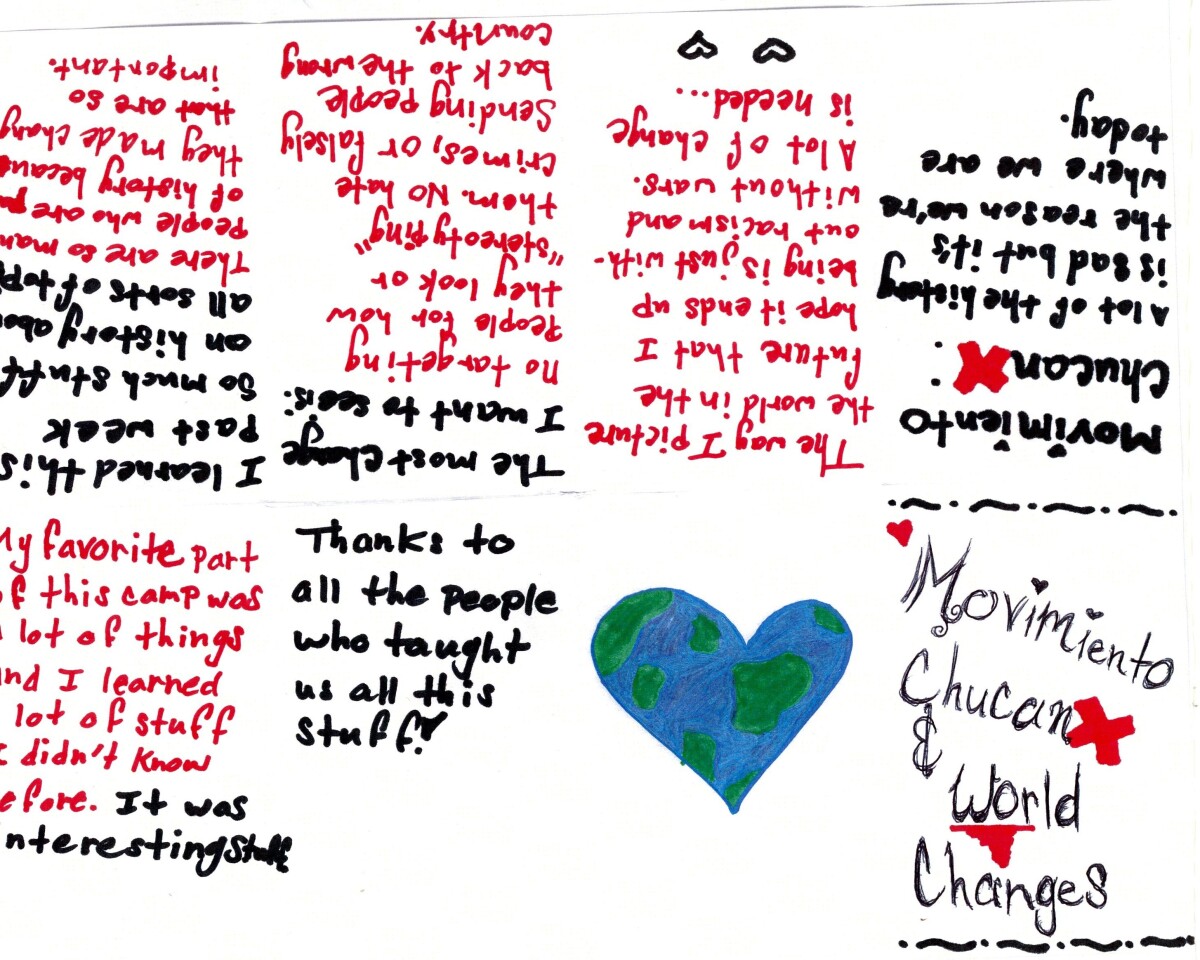 Movimiento
ChucanX
&
World
Changes
Movimiento
ChucanX:
A lot of the history
is sad but it's
the reason we're
where we are
today.
The way I picture
the world in the
future that I
hope it ends up
being is just with-
out racism and
without wars.
A lot of change
is needed...
The most change
I want to see is:
no targeting
people for how
they look or
"stereotyping"
them. No hate
crimes, or falsely
sending people
back to the wrong
country.
I learned this
past week
so much stuff
on history abou
all sorts of topi
There are so man
people who are pa
of history becaus
they made chang
that are so
important.
My favorite part
of this camp was
lot of things
and I learned
lot of stuff
I didn't know
efore. It was
nteresting stuff
Thanks to
all the people
who taught
us all this
stuff!